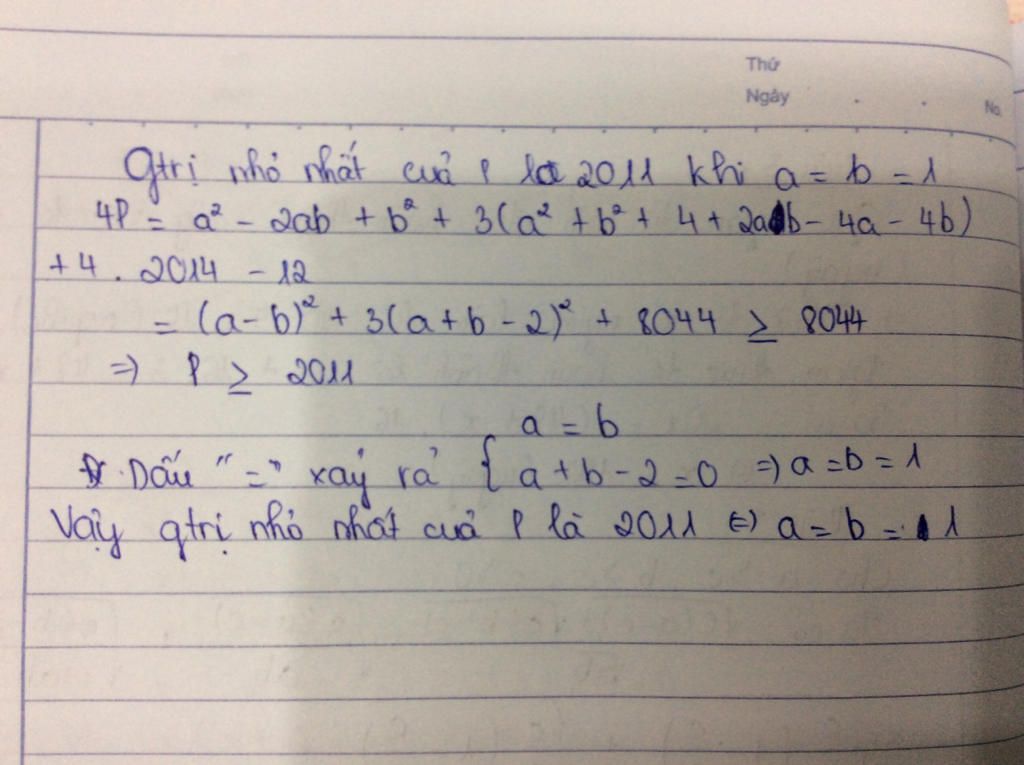 Thứ
Ngày
No.
Gtrị nhỏ nhất cuả P là 2011 khi a = b = 1
4P = a² - 2ab + b² + 3(a² + b² + 4 + 2ab - 4a - 4b)
+ 4 . 2014 - 12
= (a - b)² + 3(a + b - 2)² + 8044 ≥ 8044
=) P ≥ 2011
a = b
. Dấu "=" xaỷ rả { a + b - 2 = 0 =) a = b = 1
Vậy gtrị nhỏ nhất cuả P là 2011 (=) a = b = 1